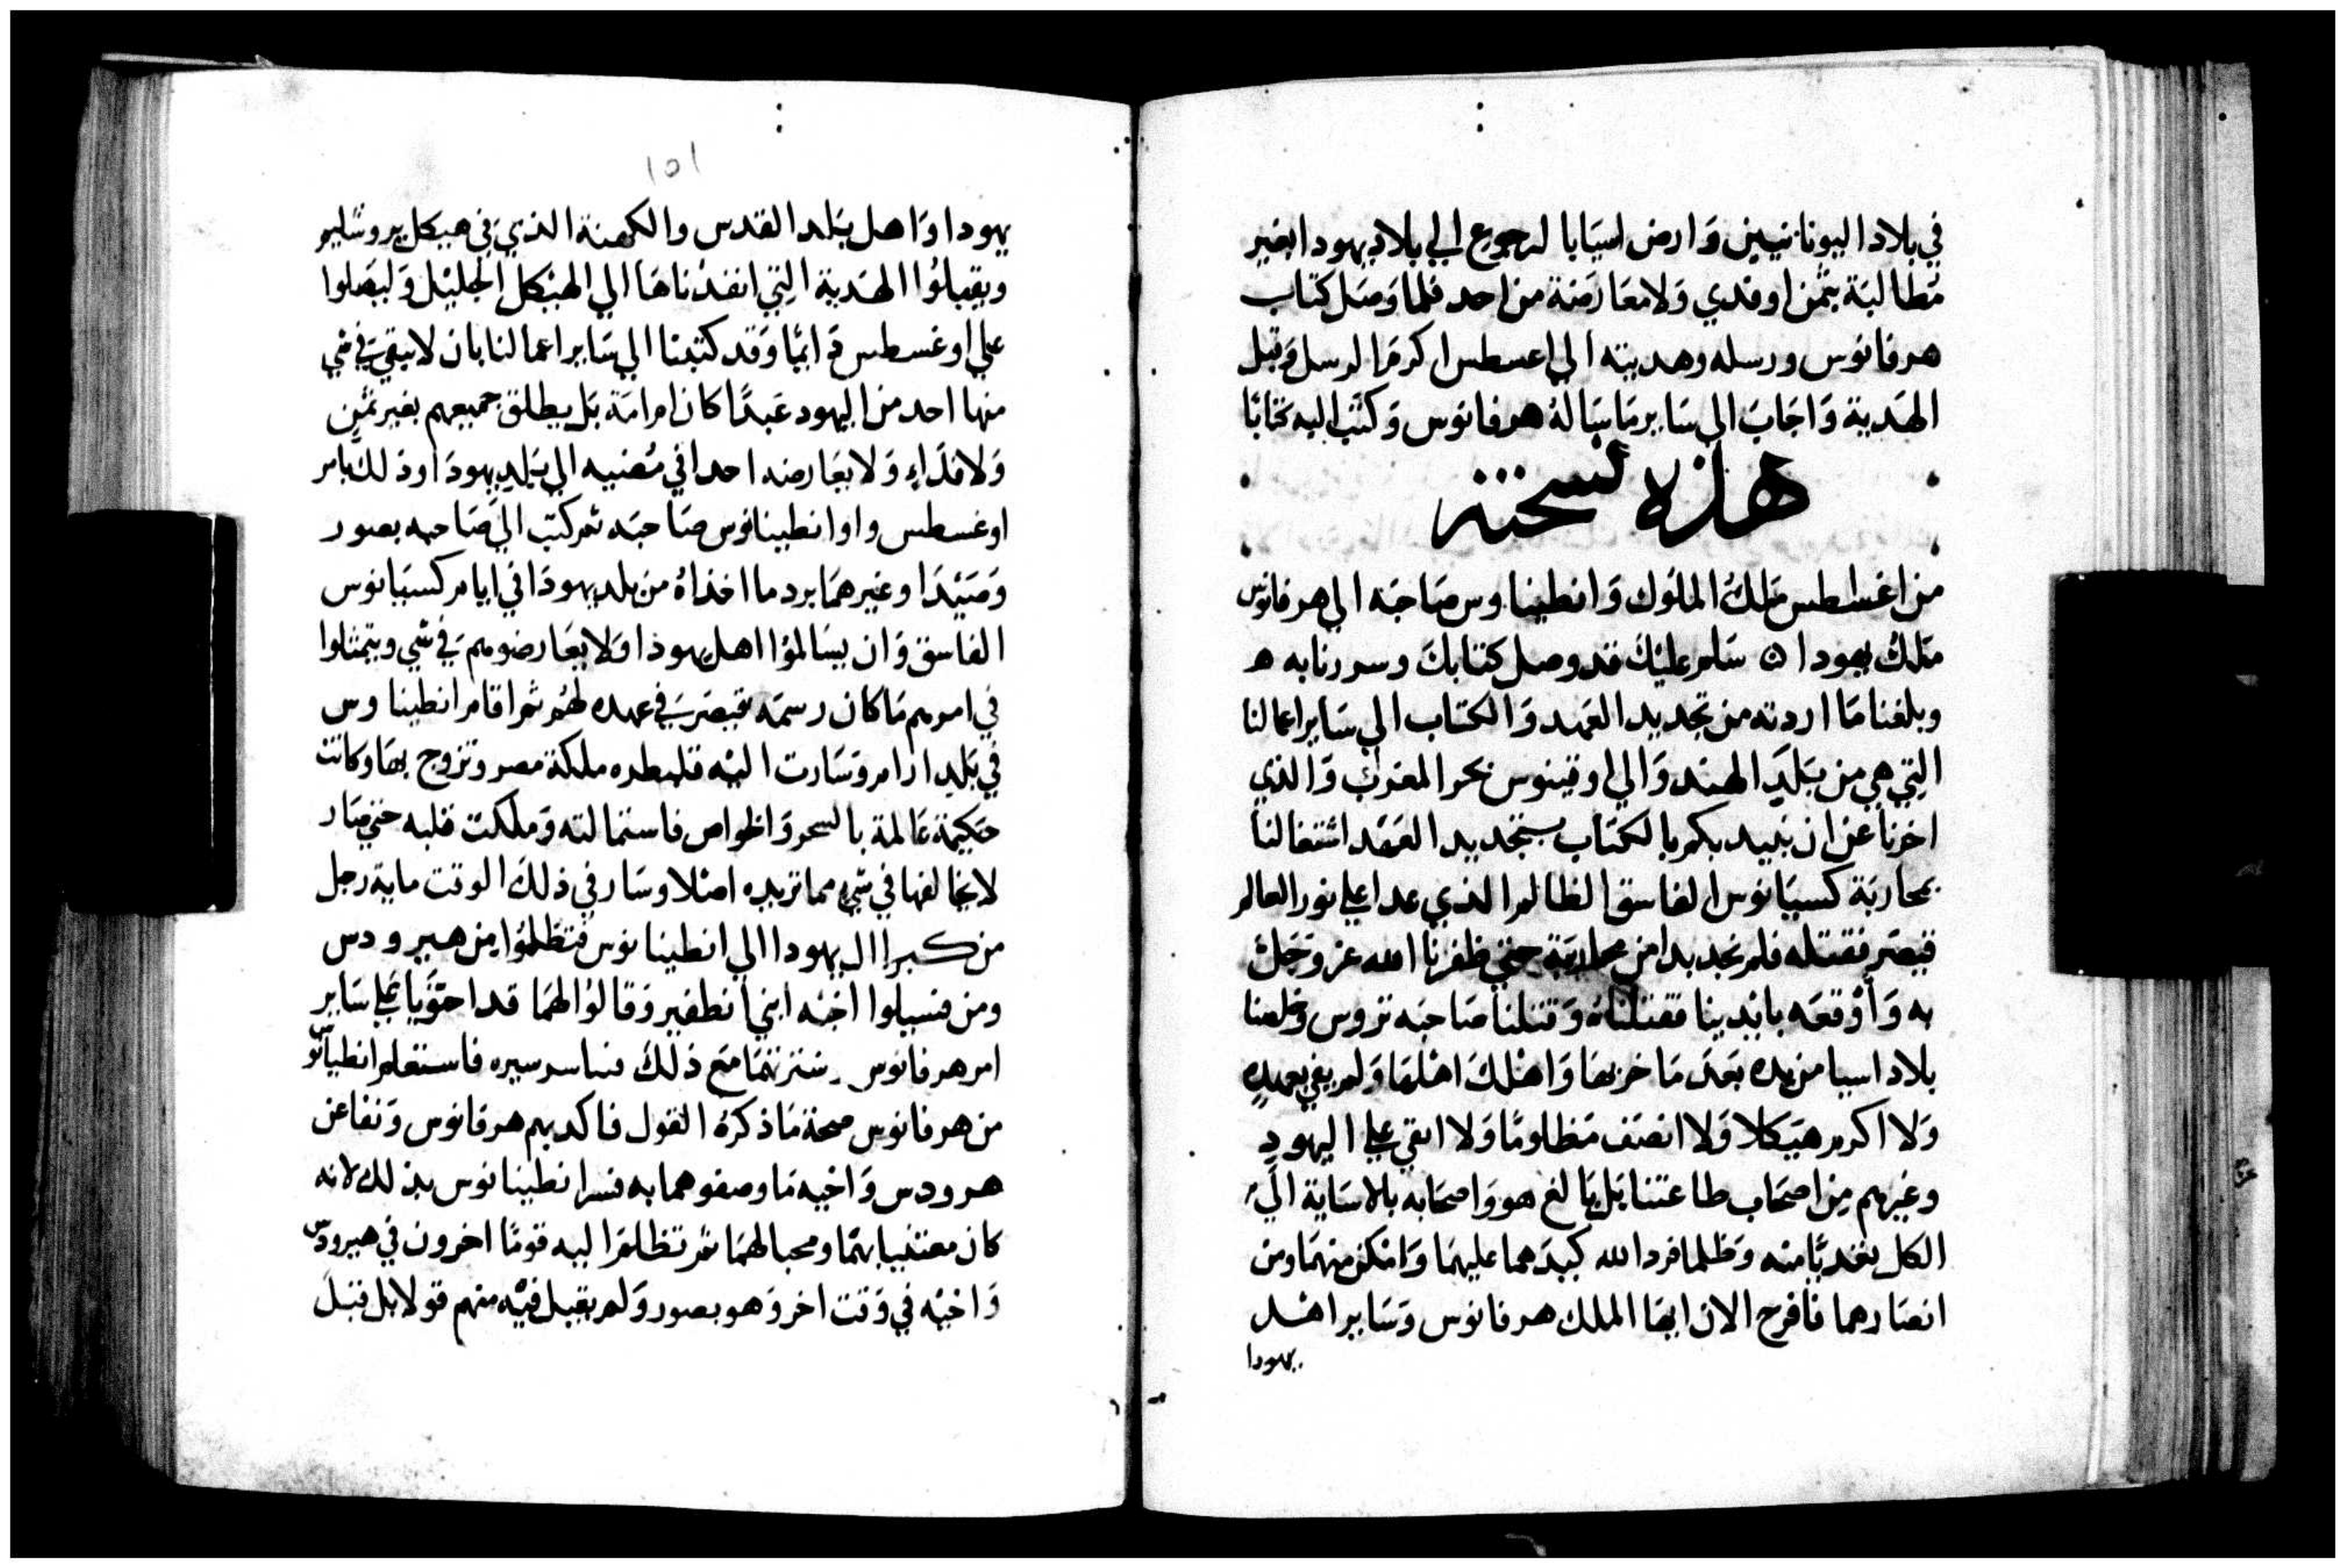 في بلاد اليونانيين وارض اسيايا لرجوع الي بلاد يهودا بغير
مطالبة بثمن او فدي ولا معارضة من احد فلما وصل كتاب
هرقانوس ورسله وهديته الي اعسطس اكرم الرسل وقبل
الهدية واجاب الي ساير ما ساله هرقانوس وكتب اليه كتابا
هذه نسخته
من اغسطس ملك الملوك وانطينياوس صاحبه الي هرقانوس
ملك يهودا ۞ سلام عليك قد وصل كتابك وسررنا به ه
وبلغنا ما اردته من تجديد العهد والكتاب الي ساير اعمالنا
التي هي من بلد الهند والي اوقينوس بحر المغرب والذي
اخرنا عن ان نبيد بكم بالكتاب بتجديد العهد اشتغالنا
بمحاربة كسيانوس الفاسق الظالم الذي عدا علي نور العالم
قيصر فقتله فلم نجد بدا من محاربته حتي ظفرنا الله عز وجل
به واوقعه بايدينا فقتلناه وقتلنا صاحبه تروس وخلصنا
بلاد اسيا من يده بعد ما خربها واهلك اهلها ولم يفي بعهده
ولا اكرم هيكلا ولا انصف مظلوما ولا ابقي علي اليهود
وغيرهم من اصحاب طاعتنا بل بالغ هو واصحابه بالاساية الي
الكل تعديا منه وظلما فرد الله كيدهما عليهما وامكن منهما ومن
انصارهما فافرح الان ايها الملك هرقانوس وساير اهل
يهودا
١٥١
يهودا واهل بلد القدس والكهنة الذي في هيكل يروشليم
ويقبلوا الهدية التي انفدناها الي الهيكل الجليل وليصلوا
علي اوغسطس دايما وقد كتبنا الي ساير اعمالنا بان لا يبقي في شي
منها احد من اليهود عبدا كان ام امة بل يطلق جميعهم بغير ثمن
ولا فداء ولا يعارضه احدا في مضيه الي بلد يهودا وذلك بامر
اوغسطس واوانطينانوس صاحبه ثم كتب الي صاحبه بصور
وصيدا وغيرهما برد ما اخذاه من بلد يهودا في ايام كسيانوس
الفاسق وان يسالموا اهل يهودا ولا يعارضوهم في شي ويتمثلوا
في امورهم ما كان رسمه قيصر في عهده لهم ثم اقام انطينياوس
في بلد ارام وسارت اليه قلبطره ملكة مصر وتزوج بها وكانت
حكيمة عالمة بالسحر والخواص فاستمالته وملكت قلبه حتي صار
لا يخالفها في شي مما تريده اصلا وسار في ذلك الوقت ماية رجل
من كبرا ال يهودا الي انطينيانوس فتظلموا من هيرودس
ومن فسيلوا اخيه ابني انطفير وقالوا لهما قد احتويا علي ساير
امر هرقانوس مع ذلك سيره فاستعلم انطيانوس
من هرقانوس صحة ما ذكره القول فاكدبهم هرقانوس ونفا عن
هرودس واخيه ما وصفوهما به فسر انطينيانوس بذلك لانه
كان معتنيا بهما ومحبا لهما ثم تظلم اليه قوما اخرون في هيرودس
واخيه في وقت اخر وهو بصور ولم يقبل فيه منهم قولا بل قبل